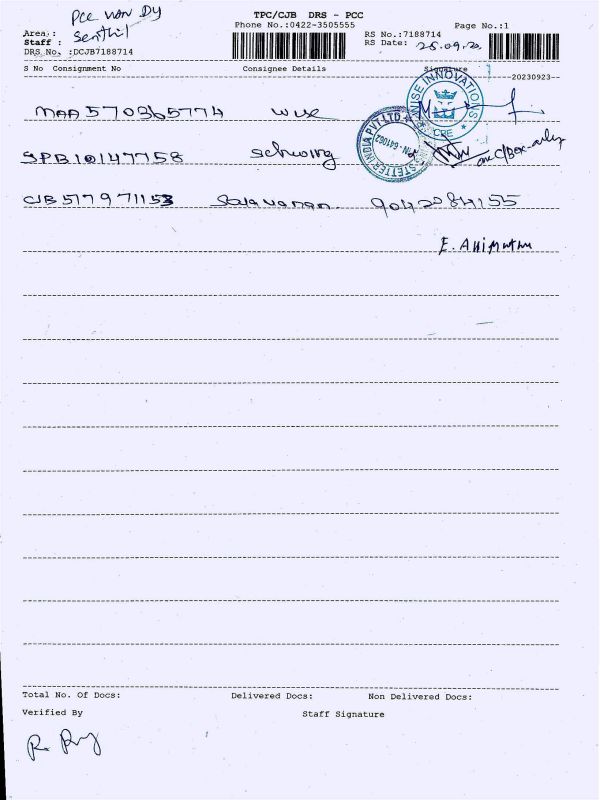 TPC/CJB DRS - PCC
PCC van Dy
Phone No.:0422-3505555
Page No.:1
Area :
Staff : Senthil
RS No.:7188714
DRS No. :DCJB7188714
RS Date: 25.09.20
S No Consignment No Consignee Details Signature
--20230923--
MAA570365774 Wise
WISE INNOVATIONS
CBE
SPB10147758 Schwing
STETTER INDIA PVT LTD
N - 641062
one c/Box only
CJB517971153 Saravanan 9042084155
E. Arimuthu
Total No. Of Docs: Delivered Docs: Non Delivered Docs:
Verified By Staff Signature